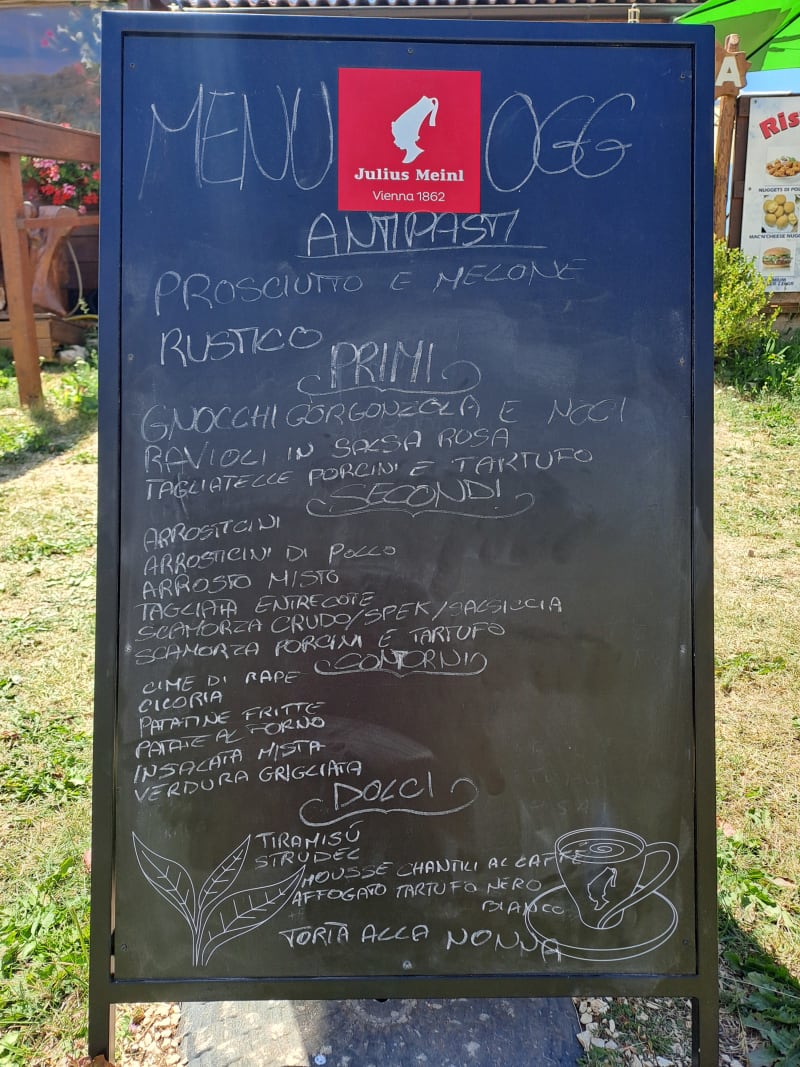 MENU OGG
Julius Meinl
Vienna 1862
ANTIPASTI
PROSCIUTTO E MELONE
RUSTICO
PRIMI
GNOCCHI GORGONZOLA E NOCI
RAVIOLI IN SALSA ROSA
TAGLIATELLE PORCINI E TARTUFO
SECONDI
ARROSTICINI
ARROSTICINI DI POLLO
ARROSTO MISTO
TAGLIATA ENTRECOTE
SCAMORZA CRUDO/SPEK/SALSICCIA
SCAMORZA PORCINI E TARTUFO
CONTORNI
CIME DI RAPE
CICORIA
PATATINE FRITTE
PATATE AL FORNO
INSALATA MISTA
VERDURA GRIGLIATA
DOLCI
TIRAMISÚ
STRUDEL
MOUSSE CHANTILI AL CAFFE
AFFOGATO TARTUFO NERO
BIANCO
TORTA ALLA NONNA
A
Ris
NUGGETS DI PO
MAC'N'CHEESE NUG